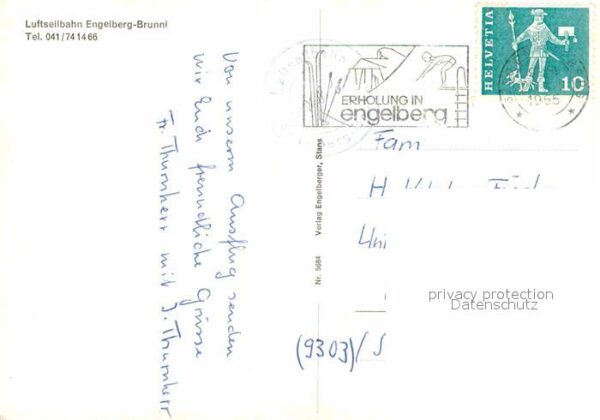 Luftseilbahn Engelberg-Brunni
Tel. 041/74 14 66
Von unserm Ausflug senden
wir Euch freundliche Grüsse
Fr. Thurnherr mit J. Thurnherr
Nr. 5684 Verlag Engelberger, Stans
ERHOLUNG IN
engelberg
HELVETIA
10
1965
Fam
(9303)/S
privacy protection
Datenschutz